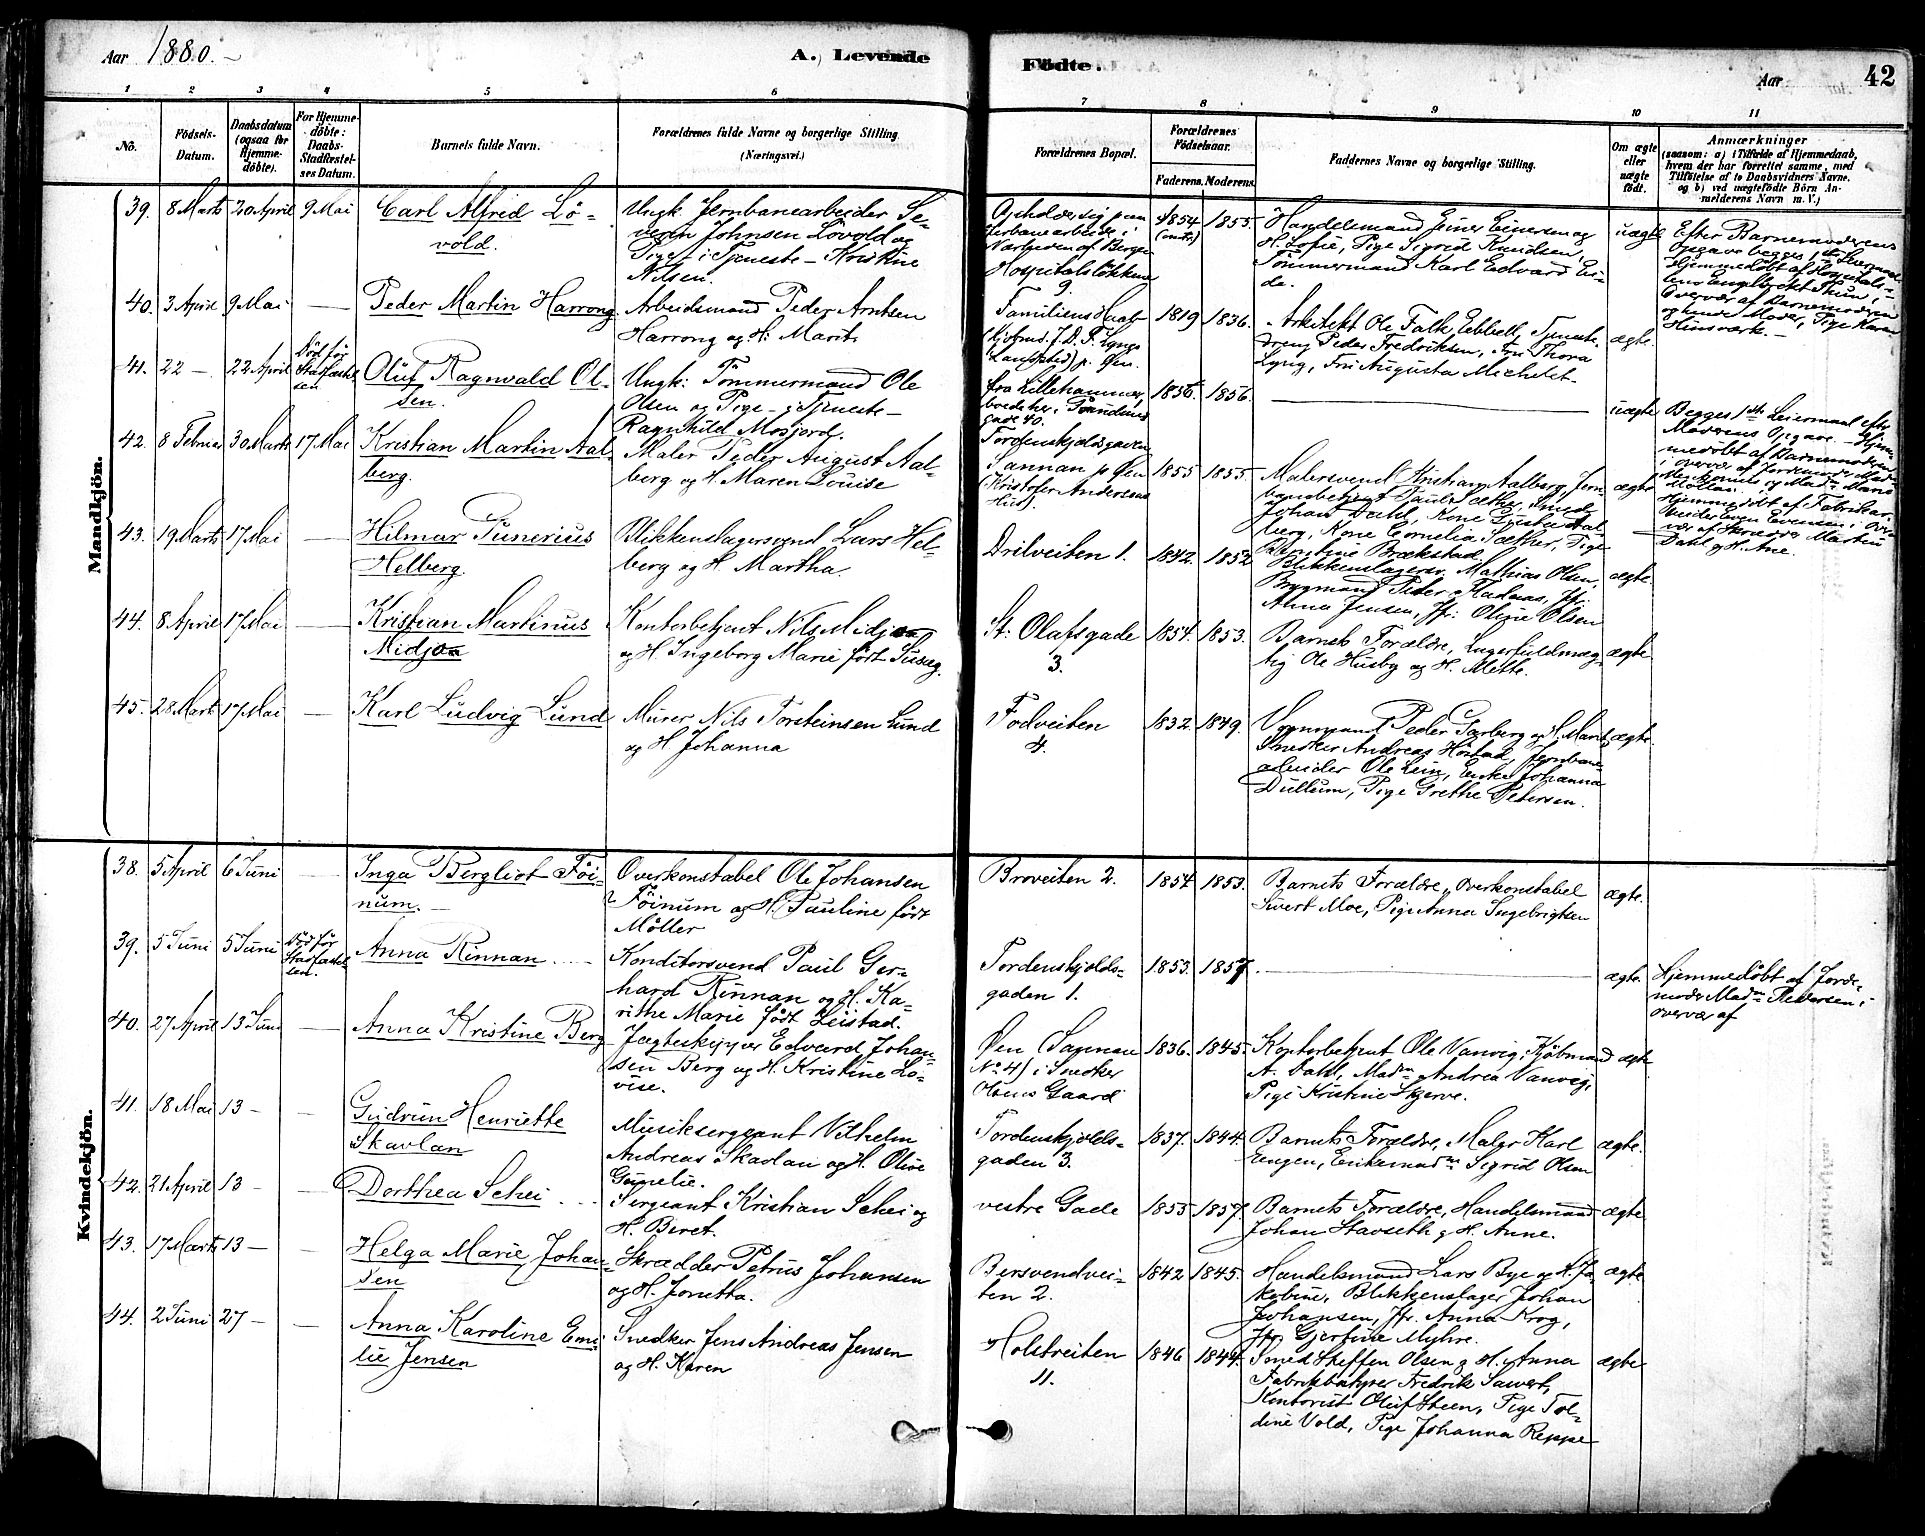 Aar 1880. A. Levende
Fødte. Aar 42
1 2 3 4 5 6
7 8 9 10 11
No. Fødsels-Datum. Daabsdatum (ogsaa for Hjemmedøbte). For Hjemmedøbte: Daabs-Stadfæstelses Datum. Barnets fulde Navn. Forældrenes fulde Navne og borgerlige Stilling. (Næringsvei.)
Forældrenes Bopæl. Forældrenes Fødselsaar. Faderens. Moderens. Faddernes Navne og borgerlige Stilling. Om ægte eller uægte født. Anmærkninger (saasom: a) i Tilfælde af Hjemmedaab, hvem der har forrettet samme, med Tilføielse af to Daabsvidners Navne. og b) ved uægtefødte Børn Anmelderens Navn m. V.)
Mandkjøn.
39. 8 Marts 20 April 9 Mai Carl Alfred Lö-
vold.
Ungk. Jernbanearbeider Se-
verin Johnsen Lövold og
Pige i Tjeneste – Kristine
Nilsen.
Hospitalslökken
9
1854 1855.
Handelsmand Einer Einersen og
H. Sofie, Pige Sigrid Knudsen,
Tömmermand Karl Edvard Ei-
de.
uægte
Efter Barnemoderens
Opgave begges 1ste Leiermaal.
Hjemmedöbt af Hospitals-
Overvær af Barnemoderen
og hendes Moder, Pige Karen
Hinsværk. –
40. 3 April 9 Mai — Peder Martin Harrong
Arbeidsmand Peder Arntsen
Harrong og H. Marit
1819 1836.
Arkitekt Ole Falk Ebbell, Tjeneste-
dreng Peder Fredriksen, Fru Thora
Lyng, Fru Augusta Michelet.
ægte.
41. 22 – 22 April Död för Stadfæstel-
sen
Oluf Ragnvald Ol-
sen.
Ungk: Tömmermand Ole
Olsen og Pige – i Tjeneste –
Ragnhild Mosjord.
fra Lillehammer,
boede her, Strandens
gade 40.
1856 1856.
uægte
Begges 1ste Leiermaal efter
Moderens Opgave. – Hjem-
medöbt af Barnemoderen
i overvær af Jordemoder
42. 8 Februar 30 Marts 17 Mai Kristian Martin Aal-
berg.
Maler Peder August Aal-
berg og H. Maren Louise
Tordenskjoldsgaden
Sannan p. Öen
(Kristofer Andersens
Hus).
1855 1855.
Malersvend Kristian Aalberg, Jern-
banebetjent Paul Sæther, Smed
Johan Dahl, Kone Gusta Aal-
berg, Kone Cornelia Sæther, Pige
Berntine Brækstad.
ægte
Hjemmedöbt af Fabrikar-
beider Even Evensen i over-
vær af Skrædder Martin
Dahl og H. Ane.
43. 19 Marts 17 Mai — Hilmar Punerius
Helberg.
Blikkenslagersvend Lars Hel-
berg og H. Martha.
Dritveiten 1. 1842. 1852
Blikkenslagersv. Mathias Olsen,
Brygmand Peder Fladaas, Jfr.
Anna Jensen, Jfr: Oline Olsen
ægte.
44. 8 April 17 Mai — Kristian Martinus
Midjoa
Kontorbetjent Nils Midjoa
og H. Ingeborg Marie født Susæg.
St: Olafsgade
3.
1854. 1853.
Barnets Forældre, Lagerfuldmæg-
tig Ole Husby og H. Mette.
ægte.
45. 28 Marts 17 Mai — Karl Ludvig Lund
Murer Nils Torsteinsen Lund
og H Johanna
Fodveiten
4.
1832 1849.
Vognmand Peder Garberg og H. Marit,
Snedker Andreas Höstad, Jernbane-
arbeider Ole Lein, Enke Johanna
Dullum, Pige Grethe Petersen.
ægte.
Kvindekjön.
38. 5 April 6 Juni — Inga Bergliot Föi-
num. –
Overkonstabel Ole Johansen
Föinum og H. Pauline født
Möller
Broveiten 2. 1854. 1853.
Barnets Forældre, Overkonstabel
Sivert Moe, Pige Anna Ingebrigtsen
ægte.
39. 5 Juni 5 Juni Död för
Stadfæstel-
sen.
Anna Rinnan
Konditorsvend Paul Ger-
hard Rinnan og H. Ka-
rithe Marie født Leistad.
Tordenskjolds-
gaden 1.
1853. 1857.
ægte.
Hjemmedöbt af Jorde-
moder Madm Pedersen i
overvær af
40. 27 April 13 Juni — Anna Kristine Berg
Jægteskipper Edvard Johan-
sen Berg og H. Kristine Lo-
vise.
Öen (Sannan
No 4) i Snedker
Olsens Gaard
1836. 1845.
Kontorbetjent Ole Vanvig, Köbmand
A. Dahl, Madm Andrea Vanvig,
Pige Kristine Skjerve.
ægte
41. 18 Mai 13 – — Gudrun Henriette
Skavlan
Musiksergeant Vilhelm
Andreas Skavlan og H. Olive
Gunelie.
Tordenskjolds-
gaden 3.
1837. 1844.
Barnets Forældre, Maler Karl
Engen, Enkemadm Sigrid Olsen
ægte.
42. 21 April 13 – — Dorthea Schei
Sergeant Kristian Schei og
H. Beret.
vestre Gade 1855 1857.
Barnets Forældre, Handelsmand
Johan Stavseth og H. Anne.
ægte
43. 17 Marts 13 – — Helga Marie Johan-
sen
Skrædder Petrus Johansen
og H. Jonetta.
Bersvendvei-
ten 2.
1842 1845.
Handelsmand Lars Bye og H. Ja-
kobine, Blikkenslager Johan
Johansen, Jfr. Anna Krog,
Jfr. Gjertine Myhre.
ægte
44. 2 Juni 27 – — Anna Karoline Emi-
lie Jensen
Snedker Jens Andreas Jensen
og H. Karen
Holstveiten
11.
1846 1844.
Smed Steffen Olsen og H. Anna
Fredrik Sawert,
Kontorist Oluf Steen, Pige Tol-
dine Vold, Pige Johanna Reppe
ægte